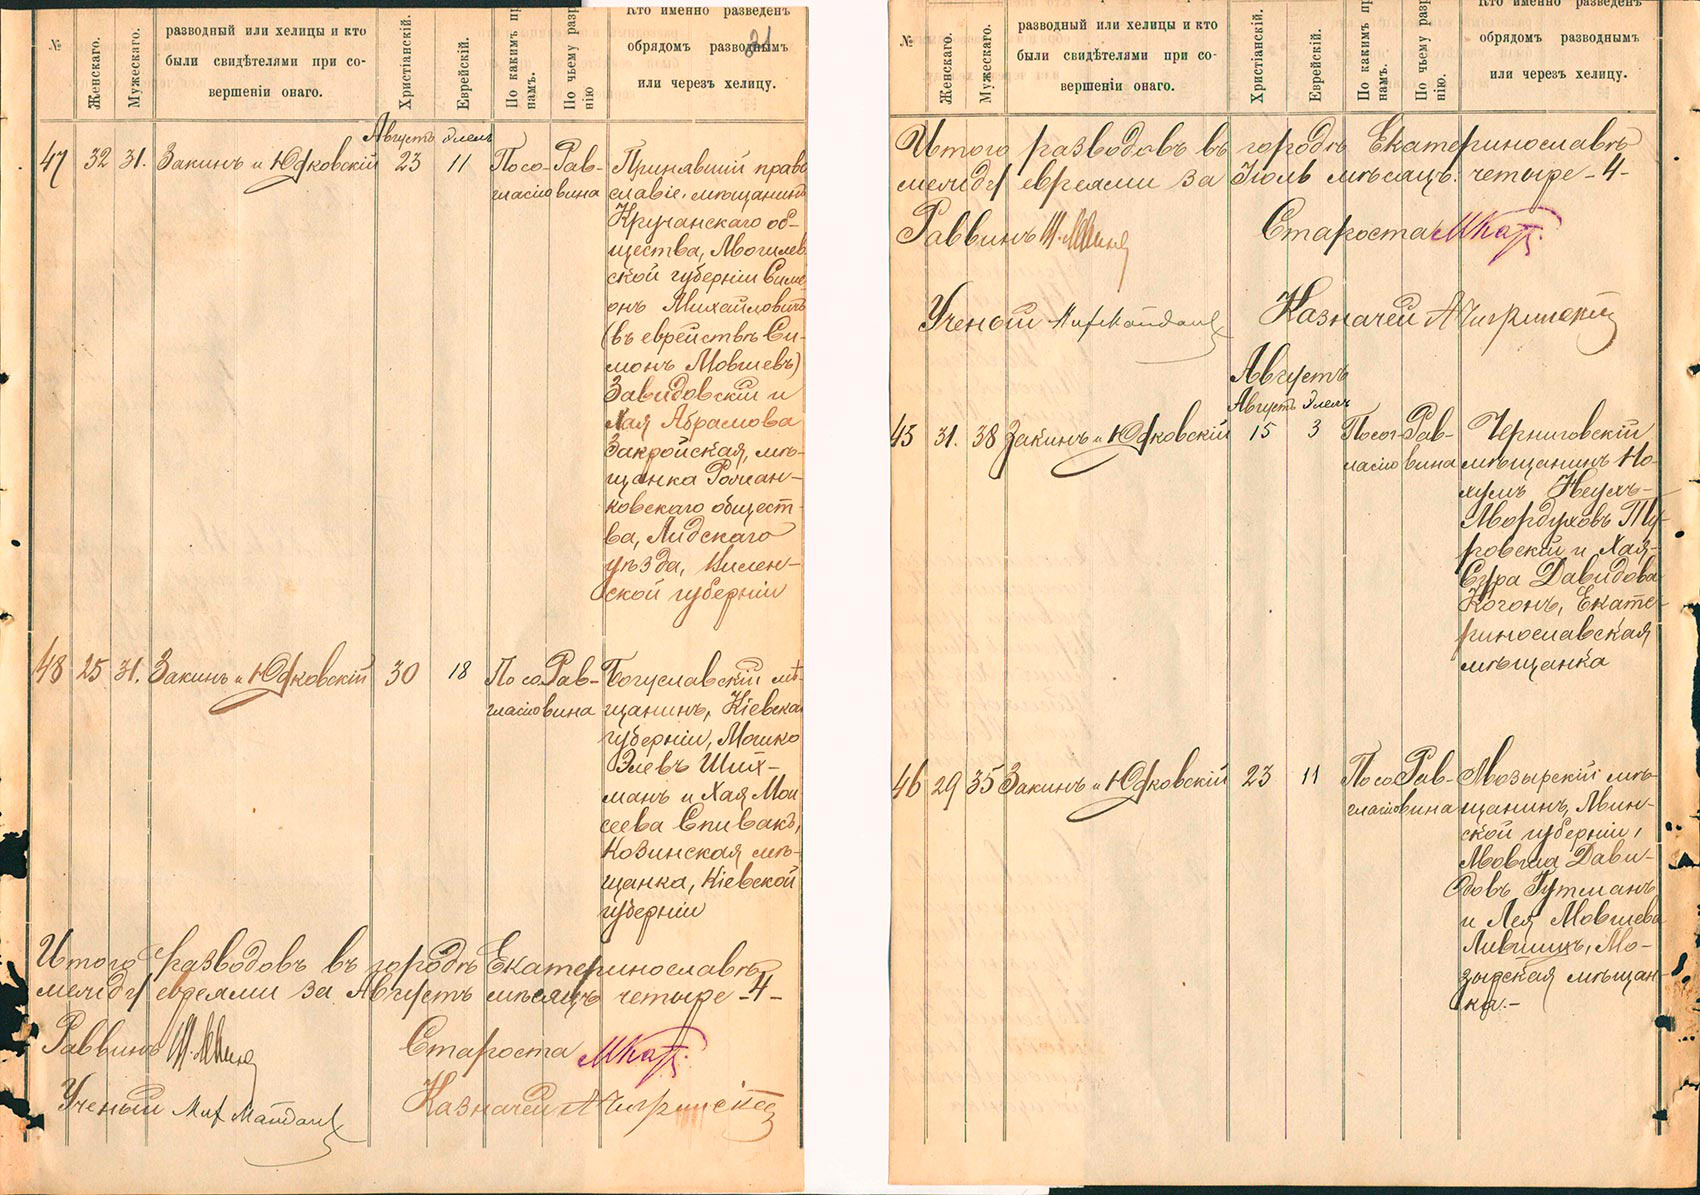 №
Женскаго.
Мужескаго.
разводный или хелицы и кто
были свидѣтелями при со-
вершеніи онаго.
Христіанскій.
Еврейскій.
По какимъ пр
намъ.
По чьему разр
нію
Кто именно разведенъ
обрядомъ разводнымъ
или черезъ хелицу.
Августъ Элелъ
47 32 31. Закинъ и Юфковскій 23 11 По со- Рав- Принявшій право
гласію вина славіе, мѣщанинъ
Кричанскаго об-
щества, Могилев
ской губерніи Симе
онъ Михайловичъ
(въ еврействѣ Си-
монъ Мовшевъ)
Завидовскій и
Хая Абрамова
Закройская, мѣ-
щанка Рожан-
ковскаго общест-
ва, Лидскаго
уѣзда, Вилен-
ской губерніи
48 25 31. Закинъ и Юфковскій 30 18 По со Рав- Богуславскій мѣ-
гласію вина щанинъ, Кіевска
губерніи, Мошко
Элевъ Ших-
манъ и Хая Мои
сеева Спивакъ,
Козинская мѣ-
щанка, Кіевской
губерніи
Итого разводовъ въ городѣ Екатеринославѣ
между евреями за Августъ мѣсяцъ четыре -4-
Раввинъ Староста
Ученый Казначей
№
Женскаго.
Мужескаго.
разводный или хелицы и кто
были свидѣтелями при со-
вершеніи онаго.
Христіанскій.
Еврейскій.
По какимъ пр
намъ.
По чьему разр
нію.
Кто именно разведенъ
обрядомъ разводнымъ
или черезъ хелицу.
Итого разводовъ въ городѣ Екатеринославѣ
между евреями за Іюль мѣсяцъ четыре -4-
Раввинъ Староста
Ученый Казначей
Августъ
Августъ Элелъ
45 31. 38 Закинъ и Юфковскій 15 3 По сог- Рав- Черниговскій
ласію вина мѣщанинъ Но-
хумъ Неухъ-
Мордуховъ Ту-
ровскій и Хая-
Сура Давидова
Когонъ, Екате-
ринославская
мѣщанка
46 29 35 Закинъ и Юфковскій 23 11 По со Рав- Мозырскій мѣ-
гласію вина щанинъ, Мин-
ской губерніи,
Мовша Дави-
довъ Гутманъ
и Лея Мовшева
Лившицъ, Мо-
зырская мѣщан-
ка.-